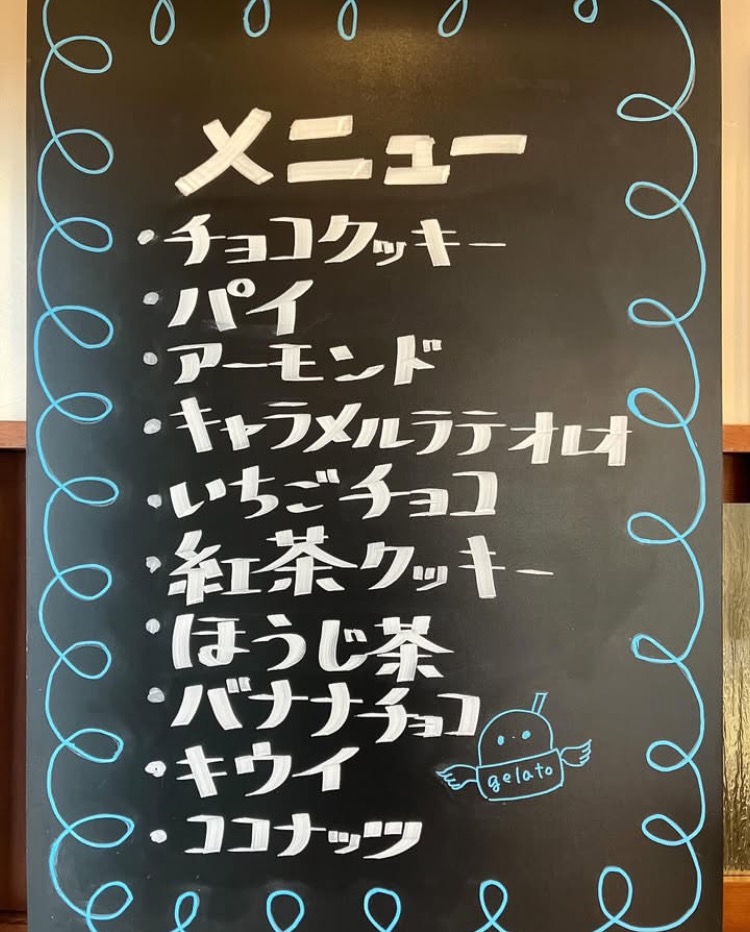 メニュー
・チョコクッキー
・パイ
・アーモンド
・キャラメルラテオレオ
・いちごチョコ
・紅茶クッキー
・ほうじ茶
・バナナチョコ
・キウイ
・ココナッツ
gelato